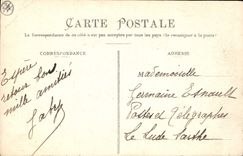 CARTE POSTALE
La Correspondance au recto n'est pas acceptée par tous les pays
CORRESPONDANCE
ADRESSE
Espère
retour bons
mille amitiés
Gaby
Mademoiselle
Germaine Esnault
Postes et Télégraphes
Le Lude Sarthe